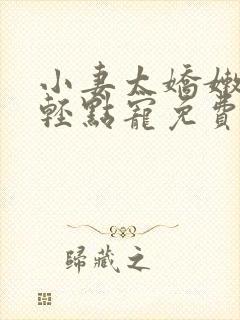 小妻太嬌嫩
輕點寵免費
歸藏之